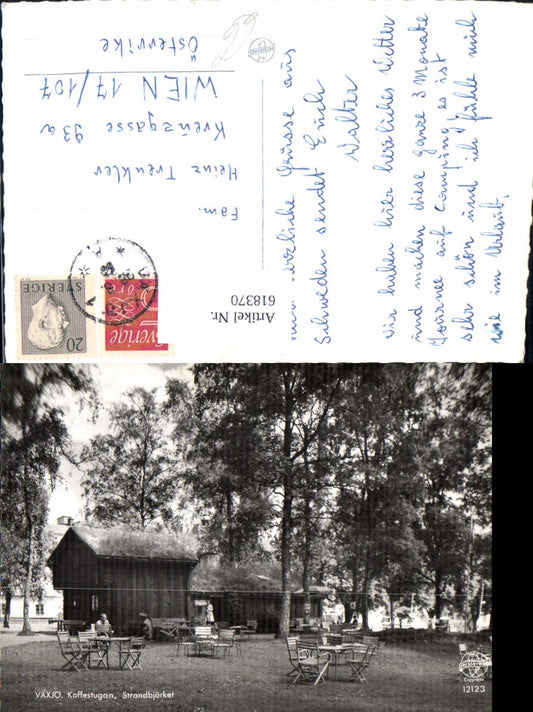 Fam.
Heinz Trenkler
Kreuzgasse 93a
WIEN 17/107
Österrike
SVERIGE
20
Sverige
Artikel Nr.
618370
Wir haben hier herrliches Wetter
und machen diese ganze 3 Monate
Tournee auf Camping es ist
sehr schön und ich fühle mich
wie im Urlaub.
Grüsse aus
Schweden sendet Euch
Walter
VÄXJÖ. Kaffestugan, Strandbjörket
12123